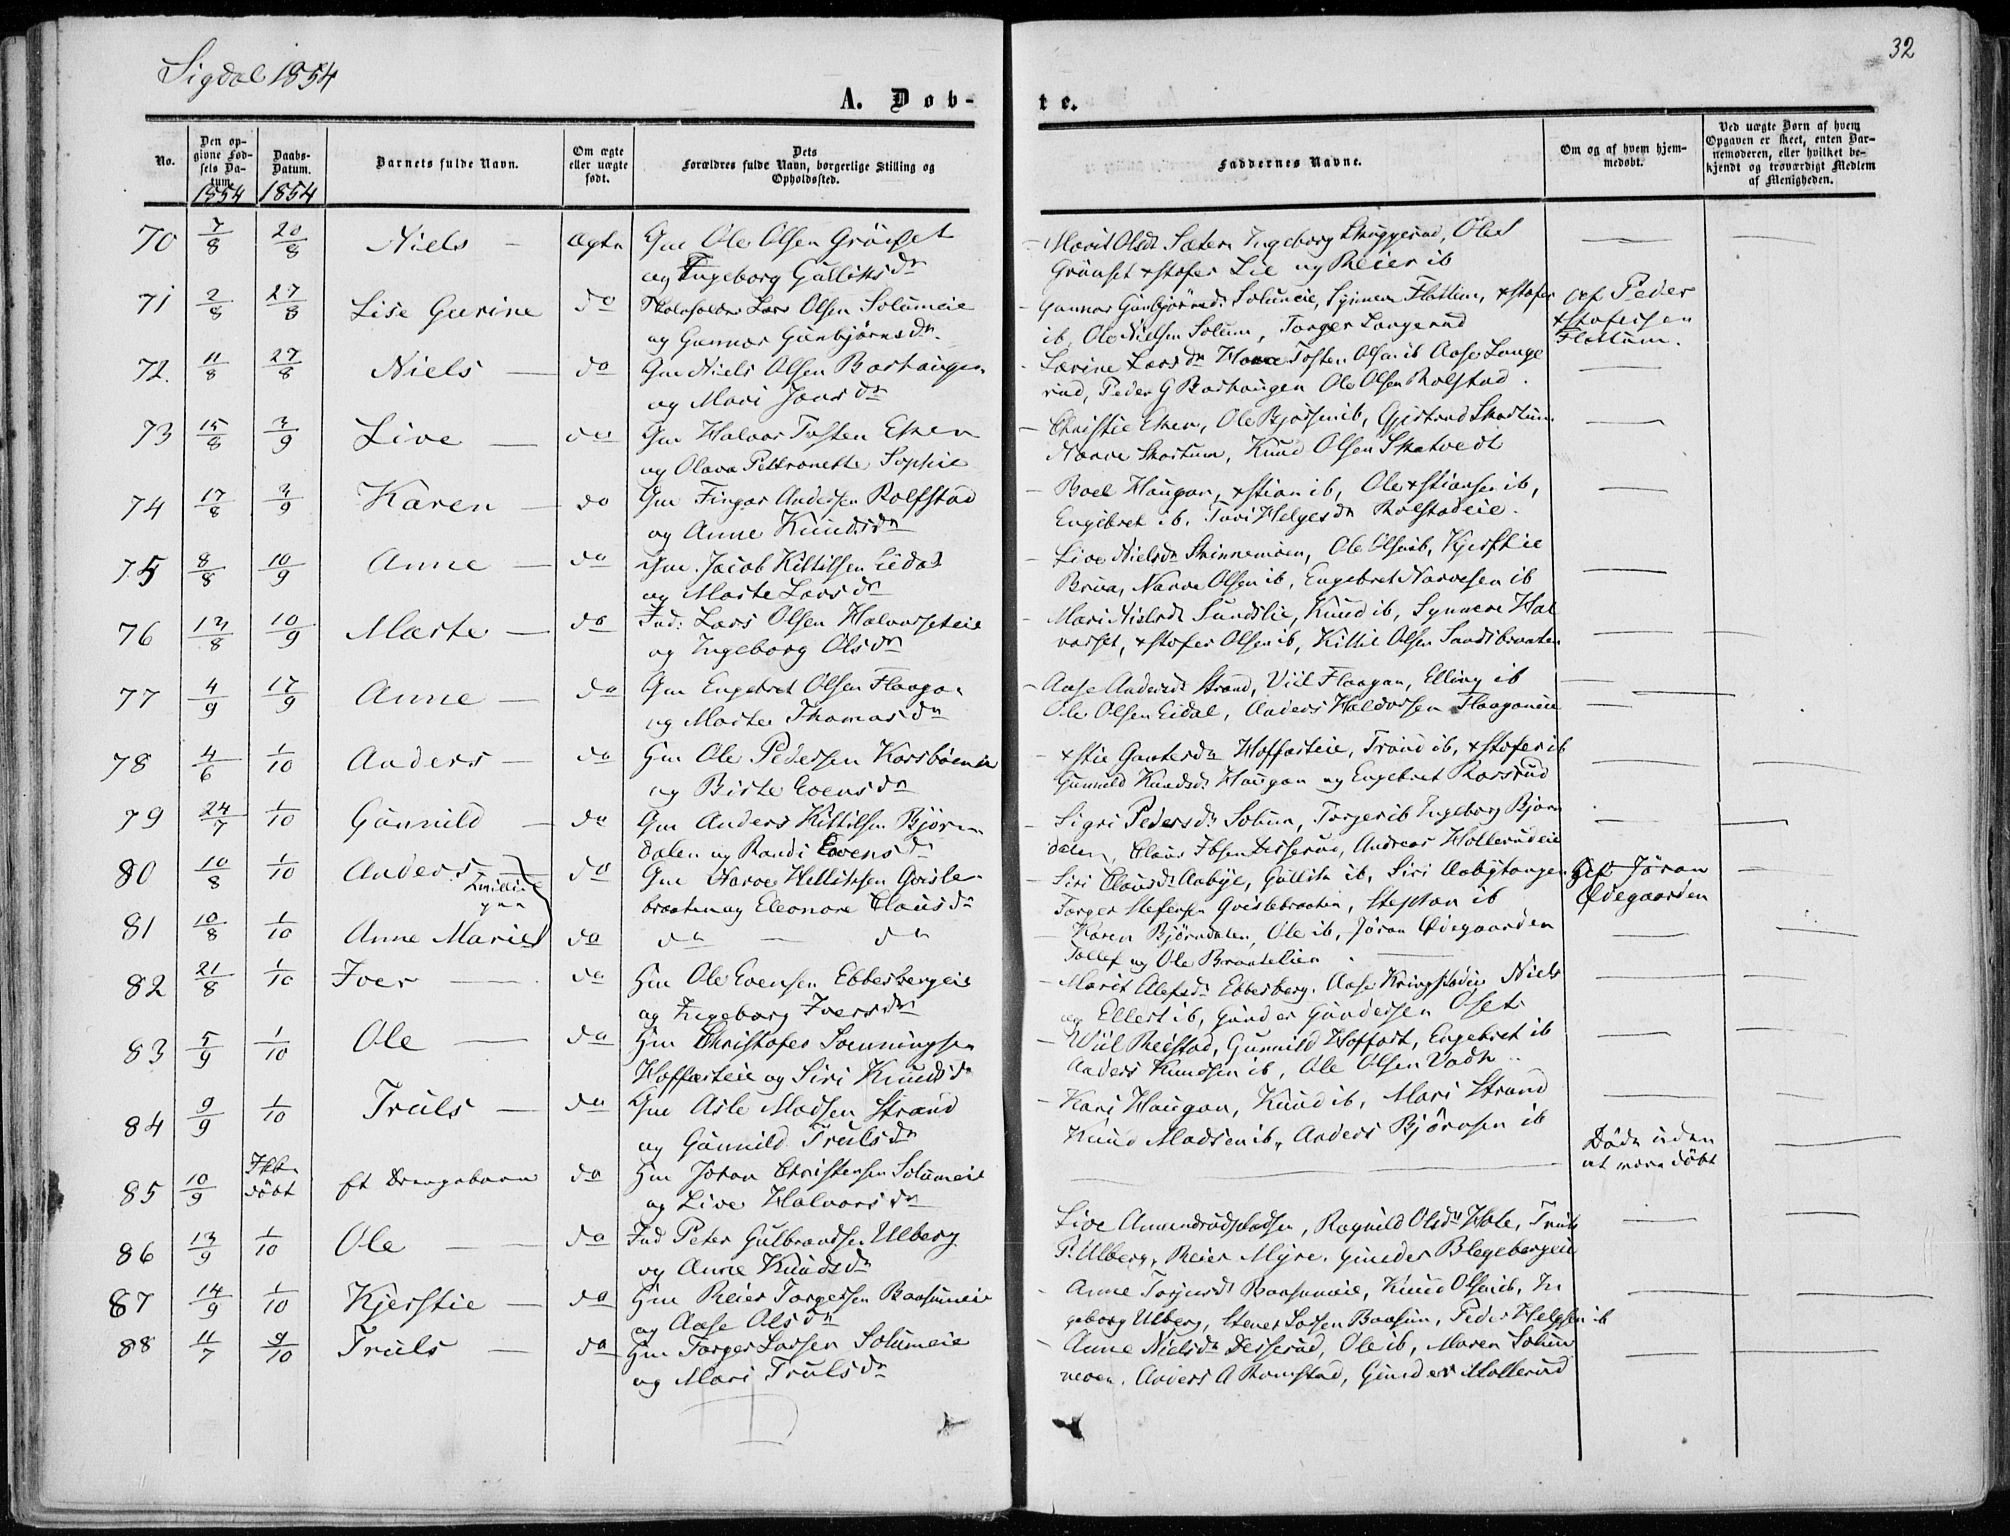 Sigdal 1854
32
A. Døb-
te.
No.
Den opgivne Fødsels Datum. 1854
Daabs-Datum. 1854
Barnets fulde Navn.
Om ægte eller uægte født.
Dets Forældres fulde Navn, borgerlige Stilling og Opholdssted.
Faddernes Navne.
Om og af hvem hjemmedøbt.
Ved uægte Børn af hvem Opgaven er skeet, enten Barnemoderen, eller hvilket bekjendt og troværdigt Medlem af Menigheden.
70 7/8 20/8 Niels - ægte Gm Ole Olsen Grönset
og Ingeborg Gulliksdn
Marit Olsdn Sætern Ingeborg Skuggerud, Ole
Grönset Xstofer Lie og Reier ib
71 2/8 27/8 Lise Gurine do Lars Olsen Solumeie
og Gunnor Gunbjørnsdn
Gunnor Gunbjørnsdn Solumeie, Synnove Flattum, Xstofer
ib, Ole Nielsen Solum, Torger Langerud
af Peder
Xstofersen
Flattum.
72. 11/8 27/8 Niels - do Gm Niels Olsen Borhaugen
og Mari Joensdn
Larine Larsdn Tosten Olsen ib Aase Lange
rud, Peder G Borhaugen Ole Olsen Rolfstad.
73 15/8 3/9 Live - do Gm Halvor Tosten Eken
og Olava Pettronette Sophie
Christie Eken, Ole ib, Gjertrud Skartum
Narve Skartum, Knud Olsen Skatvedt
74 17/8 3/9 Karen - do Gm Fingar Andersen Rolfstad
og Anne Knudsdn
Boel Haugan, Xstian ib, Ole Xstiansen ib,
Engebret ib, Turi Helgesdn Rolstadeie.
75 8/8 10/9 Anne - do Gm. Jacob Kittilsen Eidal
og Marte Larsdn
Live Nielsdn Skinnemoen, Ole Olsen ib, Kjerstie
Brua, Narve Olsen ib, Engebret Narvesen ib
76 13/8 10/9 Marte - do Ind: Lars Olsen Halvorseteie
og Ingeborg Olsdn
Mari Nielsdn Sundslie, Knud ib, Synnove Hal
vorset, Xstofer Olsen ib, Kittil Olsen Sandsbraaten
77 4/9 17/9 Anne - do Gm Engebret Olsen Flaagan
og Marte Thomasdn
Aase Andersdn Strand, Viil Flaagan, Elling ib
Ole Olsen Eidal, Anders Haldorsen Flaaganeie
78 4/6 1/10 Anders - do Hm Ole Pedersen Korsböeneie
og Birte Evensdn
Xstie Guntersdn Hoffarteie, Trond ib, Xstofer ib
Gunnild Knudsdn Haugan og Engebret Rossrud
79 24/7 1/10 Gunnild - do Gm Anders Kittilsen Björn
dalen og Randi Evensdn
Sigri Pedersdn Solum, Torger ib Ingeborg Björn
dalen, Claus Ibsen Disserud, Andreas Hollerudeie
80 10/8 1/10 Anders do Gm Narve Helliksen Gvisle
braaten og Eleonore Clausdn
Tvillinger
Siri Clausdn Aabye, Gullik ib, Siri Aabytangen
Torger Stefensen Gvislebraaten, Stephan ib
Gif Jöran
Ødegaarden
81 10/8 1/10 Anne Marie do do - do
Karen Björndalen, Ole ib, Jöran Ødegaarden
Tollef og Ole Braatelien
82 21/8 1/10 Iver - do Hm Ole Evensen Ebbesbergeie
og Ingeborg Iversdn
Marit Olefsdn Ebbesberg. Aase Kringstadeie Niels
og Ellert ib, Gunder Gundersen Oset
83 5/9 1/10 Ole - do Hm Christofer
Hoffarteie og Siri Knudsdn
Viil Reistad, Gunnild Hoffart, Engebret ib
Anders Knudsen ib, Ole Olsen
84 9/9 1/10 Truls - do Gm Asle Madsen Strand
og Gunnild Trulsdn
Kari Haugan, Knud ib, Mari Strand
Knud Madsen ib, Anders Björnsen ib
85 10/9 Ikke
döbt et Drengebarn do Hm Johan Christensen Solumeie
og Live Halvorsdn
Döde uden
at være döbt
86 13/9 1/10 Ole - do Ind Peter Gulbrandsen Ulberg
og Anne Knudsdn
Live Ragnild Olsdn Hole, Truls
P. Ulberg, Reier Myre, Gunder Blegebergeie
87 14/9 1/10 Kjerstie - do Hm Reier Torgersen Baasumeie
og Aase Olsdn
Anne Baasumeie, Knud Olsen ib, In
geborg Ulberg, Stener Larsen Baasum, Peder Helgesen ib
88 11/7 9/10 Truls - do Hm Torger Larsen Solumeie
og Mari Trulsdn
Anne Nielsdn Disserud, Ole ib, Maren Solum
Anders A Ramstad, Gunder Mollerud